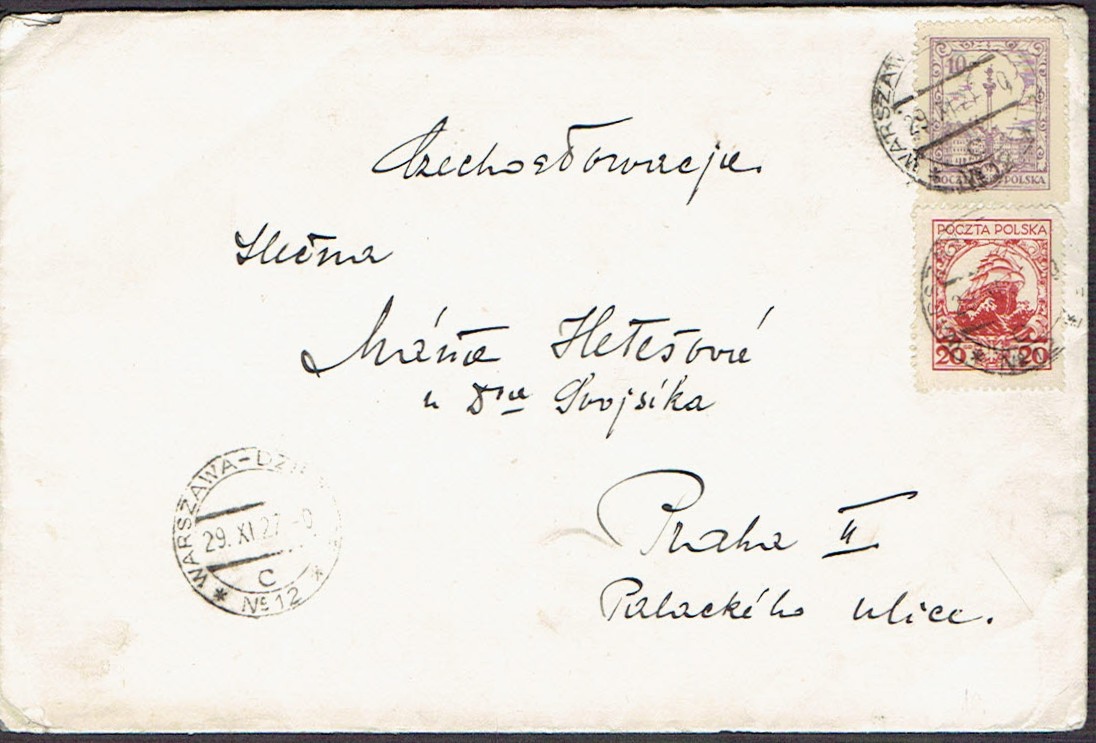 Czechosłowacja.
Slečna
Máňa Hetešová
u Dra Svojsíka
Praha II
Palackého ulice.
10
POCZTA POLSKA
POCZTA POLSKA
20 20
WARSZAWA
WARSZAWA-DZ
29. XI 27.-0
C
* № 12 *